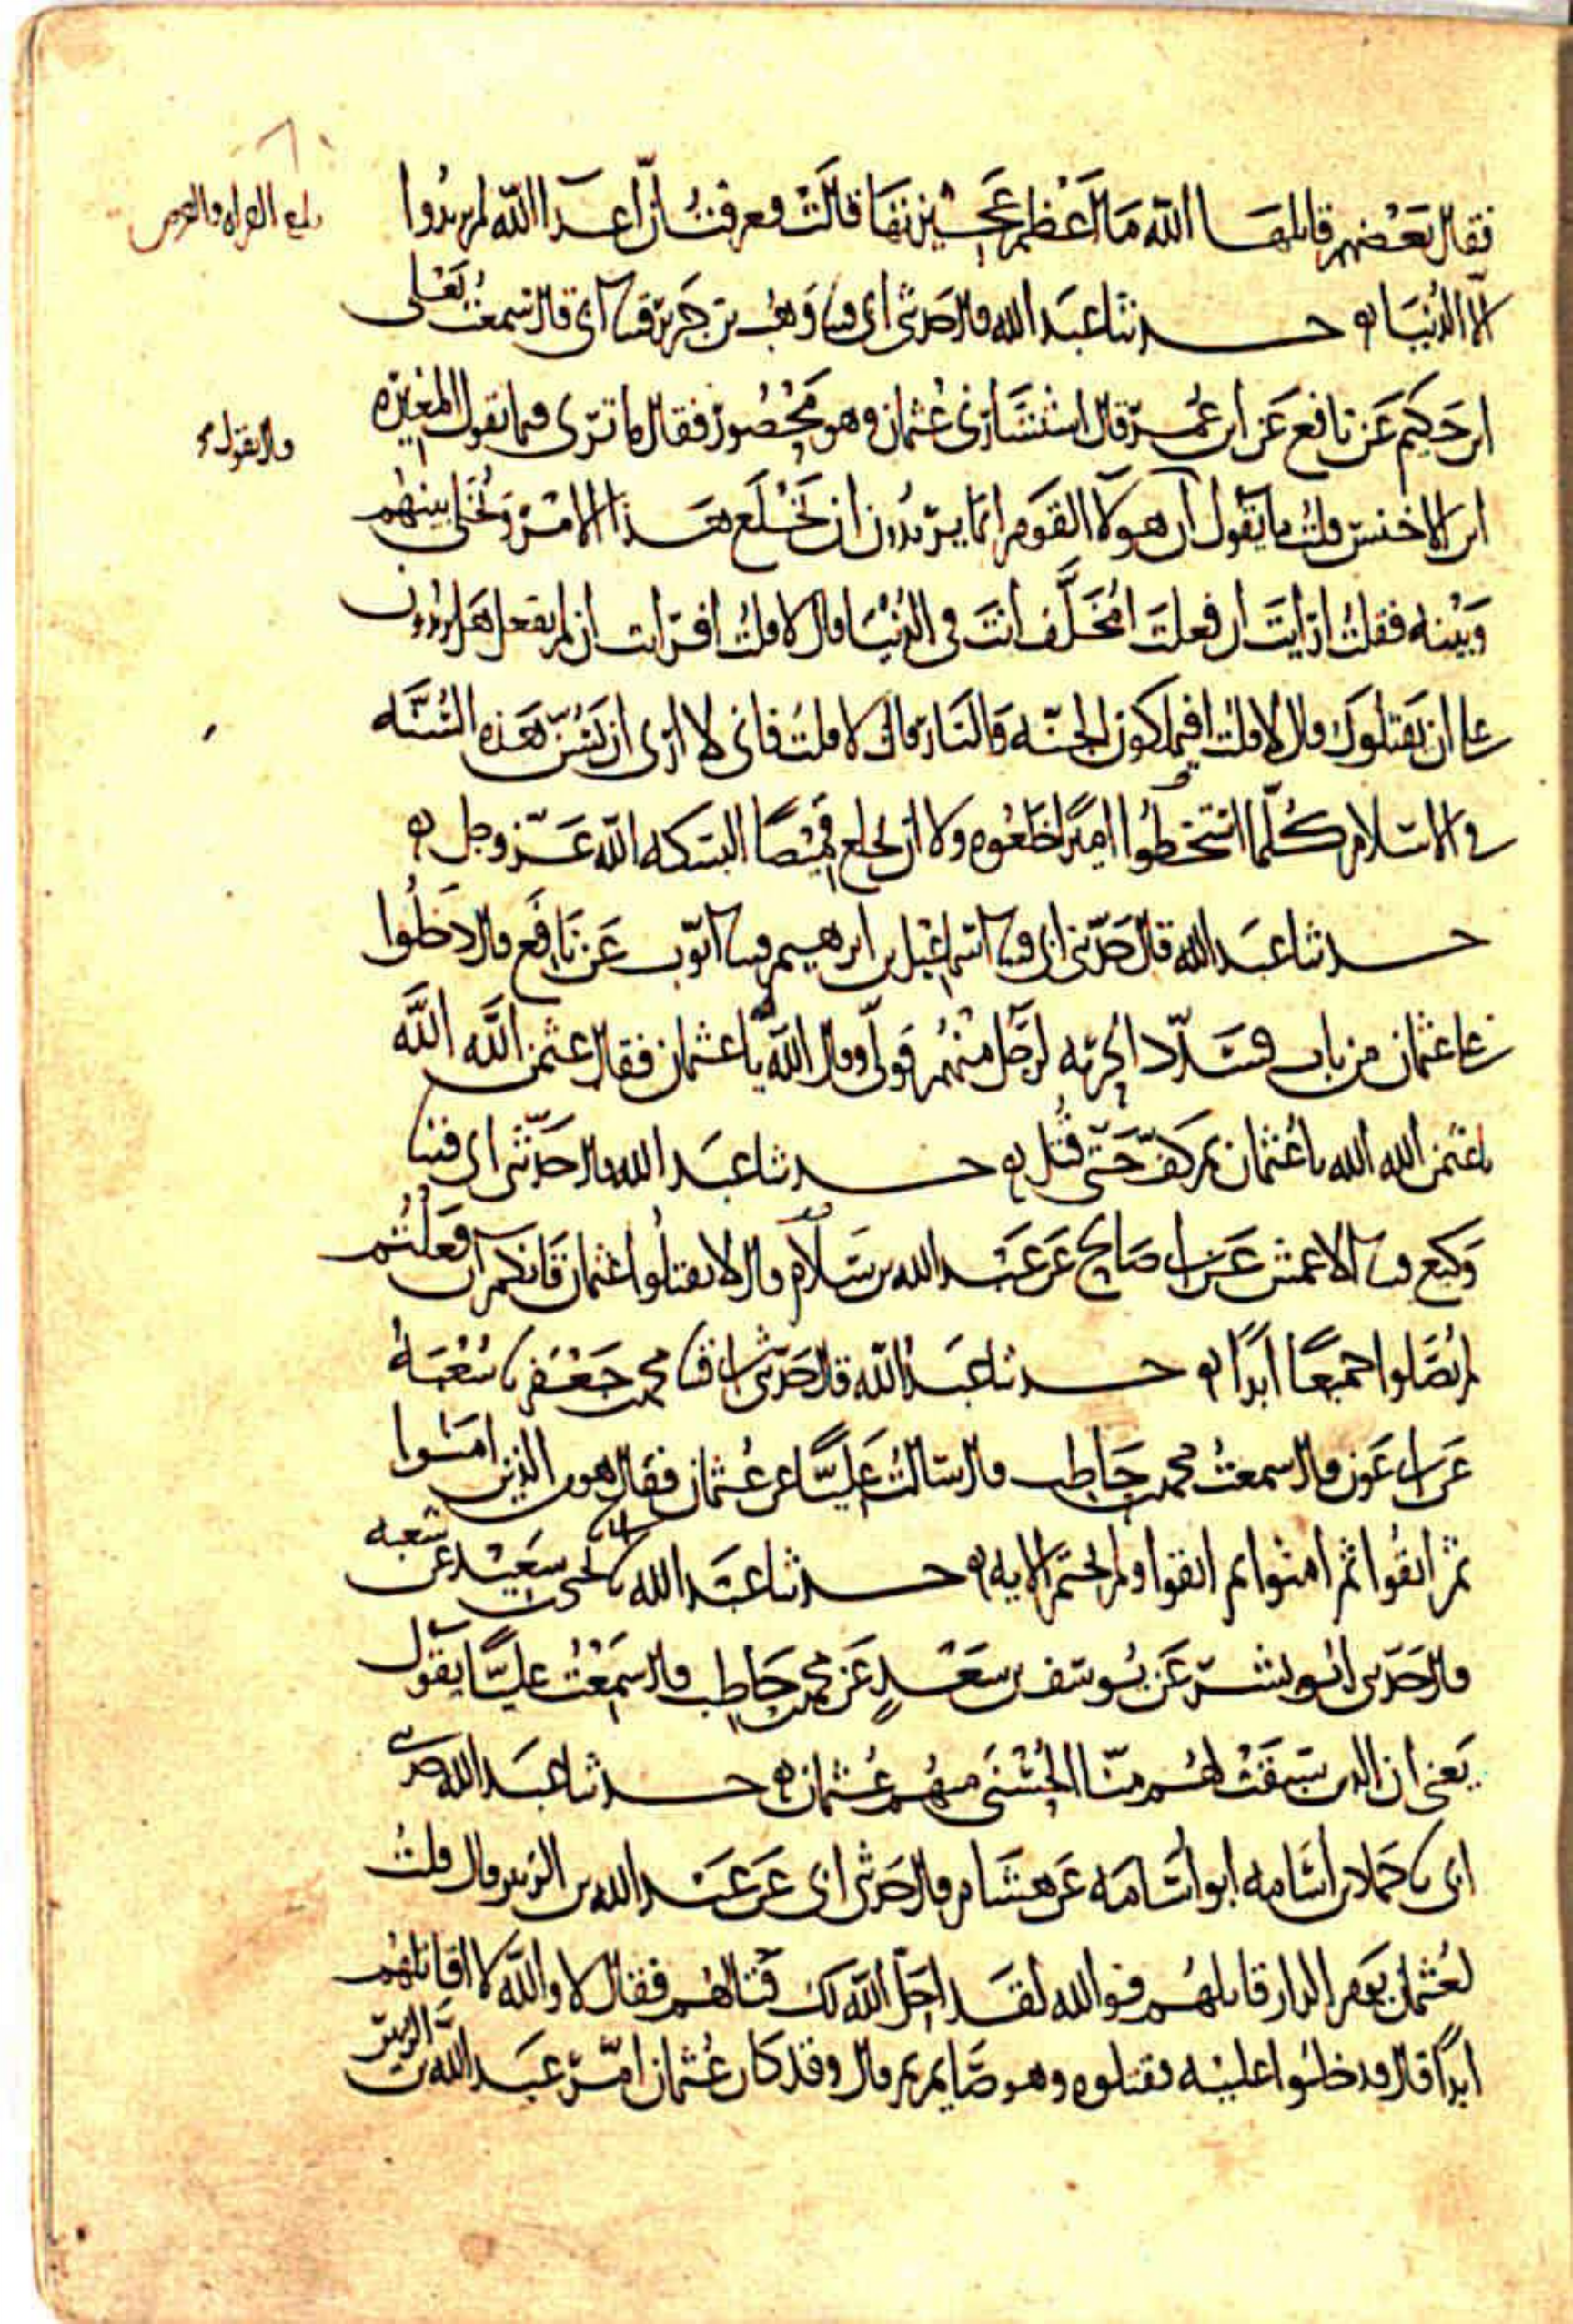 فقال بعضهم قاتلها الله ما اعظم عجيزتها قالت فعرفت ان اعدا الله لم يريدوا
الا الدنيا حدثنا عبد الله قال حدثني ابي قثنا وهب بن جرير قثنا ابي قال سمعت يعلى
ابن حكيم عن نافع عن ابن عمر قال استشارني عثمان وهو محصور فقال ما ترى فيما يقول المغيره
ابن الاخنس قلت ما يقول قال يقول ان هولا القوم انما يريدون ان تخلع هذا الامر وتخلي بينهم
وبينه فقلت ارايت ان فعلت امخلد انت في الدنيا قال لا قلت افرايت ان لم تفعل هل يزيدون
على ان يقتلوك قال لا قلت افيملكون الجنه والنار قال لا قلت فاني لا ارى ان تسن هذه السنه
في الاسلام كلما استخطوا اميرا خلعوه ولا ان تخلع قميصا البسكه الله عز وجل
حدثنا عبد الله قال حدثني ابي قثنا اسماعيل بن ابرهيم قثنا ايوب عن نافع قال دخلوا
على عثمان من باب فسدد الحربه لرجل منهم فولى وقال الله يا عثمان فقال عثمن الله الله
يا عثمن الله الله يا عثمان ثم كف حتى قتل حدثنا عبد الله قال حدثني ابي قثنا
وكيع قثنا الاعمش عن ابي صالح عن عبد الله بن سلام قال لا تقتلوا عثمان فانكم ان فعلتم
لم تصلوا جميعا ابدا حدثنا عبد الله قال حدثني ابي قثنا محمد بن جعفر نا شعبة
عن ابي عون قال سمعت محمد بن حاطب قال سالت عليا عن عثمان فقال هو من الذين امنوا
ثم اتقوا ثم امنوا ثم اتقوا ولم يختم الايه حدثنا عبد الله نا ابي نا يحيى بن سعيد عن شعبه
قال حدثني ابو بشر عن يوسف بن سعد عن محمد بن حاطب قال سمعت عليا يقول
يعني ان الذين سبقت لهم منا الحسنى منهم عثمان حدثنا عبد الله حدثني
ابي نا حماد بن اسامه ابو اسامه عن هشام قال حدثني ابي عن عبد الله بن الزبير قال قلت
لعثمان يوم الدار قاتلهم فوالله لقد احل الله لك قتالهم فقال لا والله لا اقاتلهم
ابدا قال فدخلوا عليه فقتلوه وهو صايم ثم قال وقد كان عثمان امر عبد الله بن الزبير